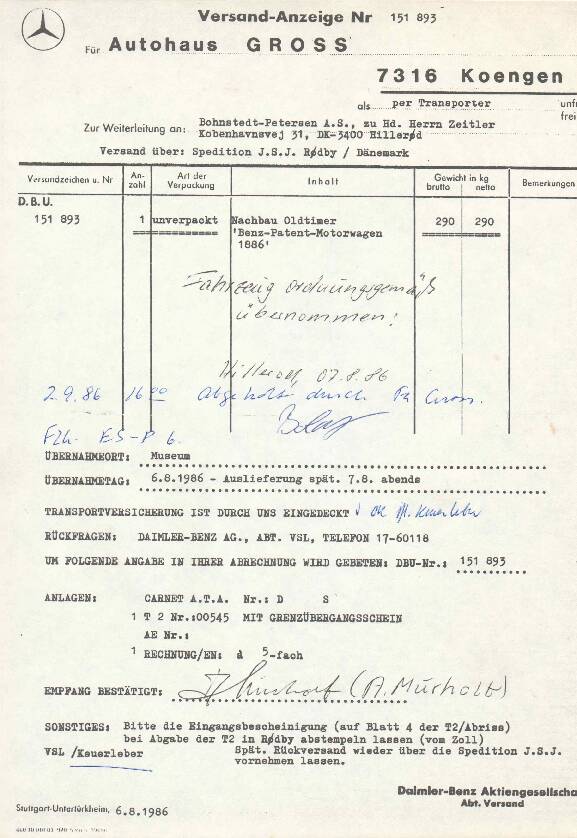 Versand-Anzeige Nr 151 893
Für Autohaus GROSS
7316 Koengen
als per Transporter unf
frei
Zur Weiterleitung an: Bohnstedt-Petersen A.S., zu Hd. Herrn Zeitler
Kobenhavnsvej 31, DK-3400 Hillerød
Versand über: Spedition J.S.J. Rødby / Dänemark
Versandzeichen u. Nr An-zahl Art der Verpackung Inhalt Gewicht in kg brutto netto Bemerkungen
D.B.U.
151 893 1 unverpackt Nachbau Oldtimer 290 290
'Benz-Patent-Motorwagen
1886'
Fahrzeug ordnungsgemäß
übernommen!
Hillerød, 07.8.86
2.9.86 16 00 Abgeholt durch Fa Gross.
Fzh. ES-P 6
ÜBERNAHMEORT: Museum
ÜBERNAHMETAG: 6.8.1986 - Auslieferung spät. 7.8. abends
TRANSPORTVERSICHERUNG IST DURCH UNS EINGEDECKT ok Keuerleber
RÜCKFRAGEN: DAIMLER-BENZ AG., ABT. VSL, TELEFON 17-60118
UM FOLGENDE ANGABE IN IHRER ABRECHNUNG WIRD GEBETEN: DBU-Nr.: 151 893
ANLAGEN: CARNET A.T.A. Nr.: D S
1 T 2 Nr.:00545 MIT GRENZÜBERGANGSSCHEIN
AE Nr.:
1 RECHNUNG/EN: á 5-fach
EMPFANG BESTÄTIGT: (A. Murholt)
SONSTIGES: Bitte die Eingangsbescheinigung (auf Blatt 4 der T2/Abriss)
bei Abgabe der T2 in Rødby abstempeln lassen (vom Zoll)
VSL /Keuerleber Spät. Rückversand wieder über die Spedition J.S.J.
vornehmen lassen.
Daimler-Benz Aktiengesellscha
Abt. Versand
Stuttgart-Untertürkheim, 6.8.1986